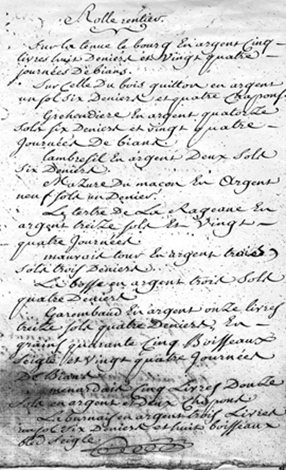 Rolle rentier.
Sur la tenue le bourg En argent Cinq
livres huit Deniers et Vingt quatre
journées De bians.
Sur Celle Du bois guillon en argent
un sol Six Deniers et quatre Chapons.
En argent quatorze
Sols six Deniers et vingt quatre
Journées De bians
Lambresil En argent Deux Sols
Six Deniers.
Mazure Du macon En Argent
neuf sols un Denier.
Le tertre De La Rageane En
argent treize Sols Et Vingt
quatre Journées
mauvait tour En argent trois
Sols trois Deniers.
La basse en argent trois Sols
quatre Deniers
Garombaud En argent onze livres
treize Sols quatre Deniers, En
grains quarante Cinq Boisseaux
Seigle et Vingt quatre Journées
De Bians
Cinq Livres Douze
Sols en argent et deux Chapons
en argent trois Livres
un sol Six Deniers et huit boisseaux
bled Seigle